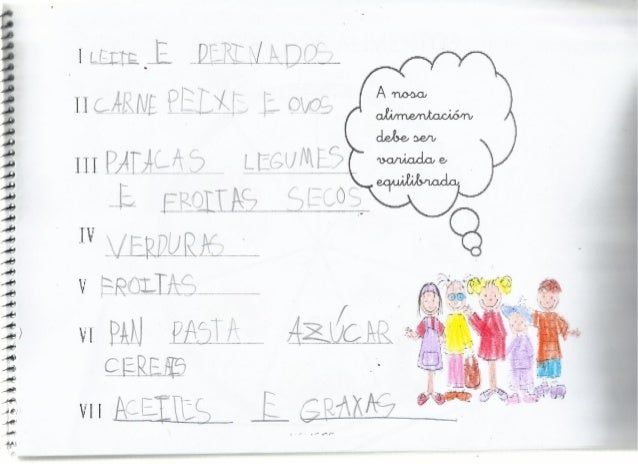 I LEITE E DERIVADOS
II CARNE PEIXE E OVOS
A nosa
alimentación
debe ser
variada e
equilibrada
III PATACAS LEGUMES
E FROITAS SECOS
IV VERDURAS
V FROITAS
VI PAN PASTA AZÚCAR
CEREAIS
VII ACEITES E GRAXAS